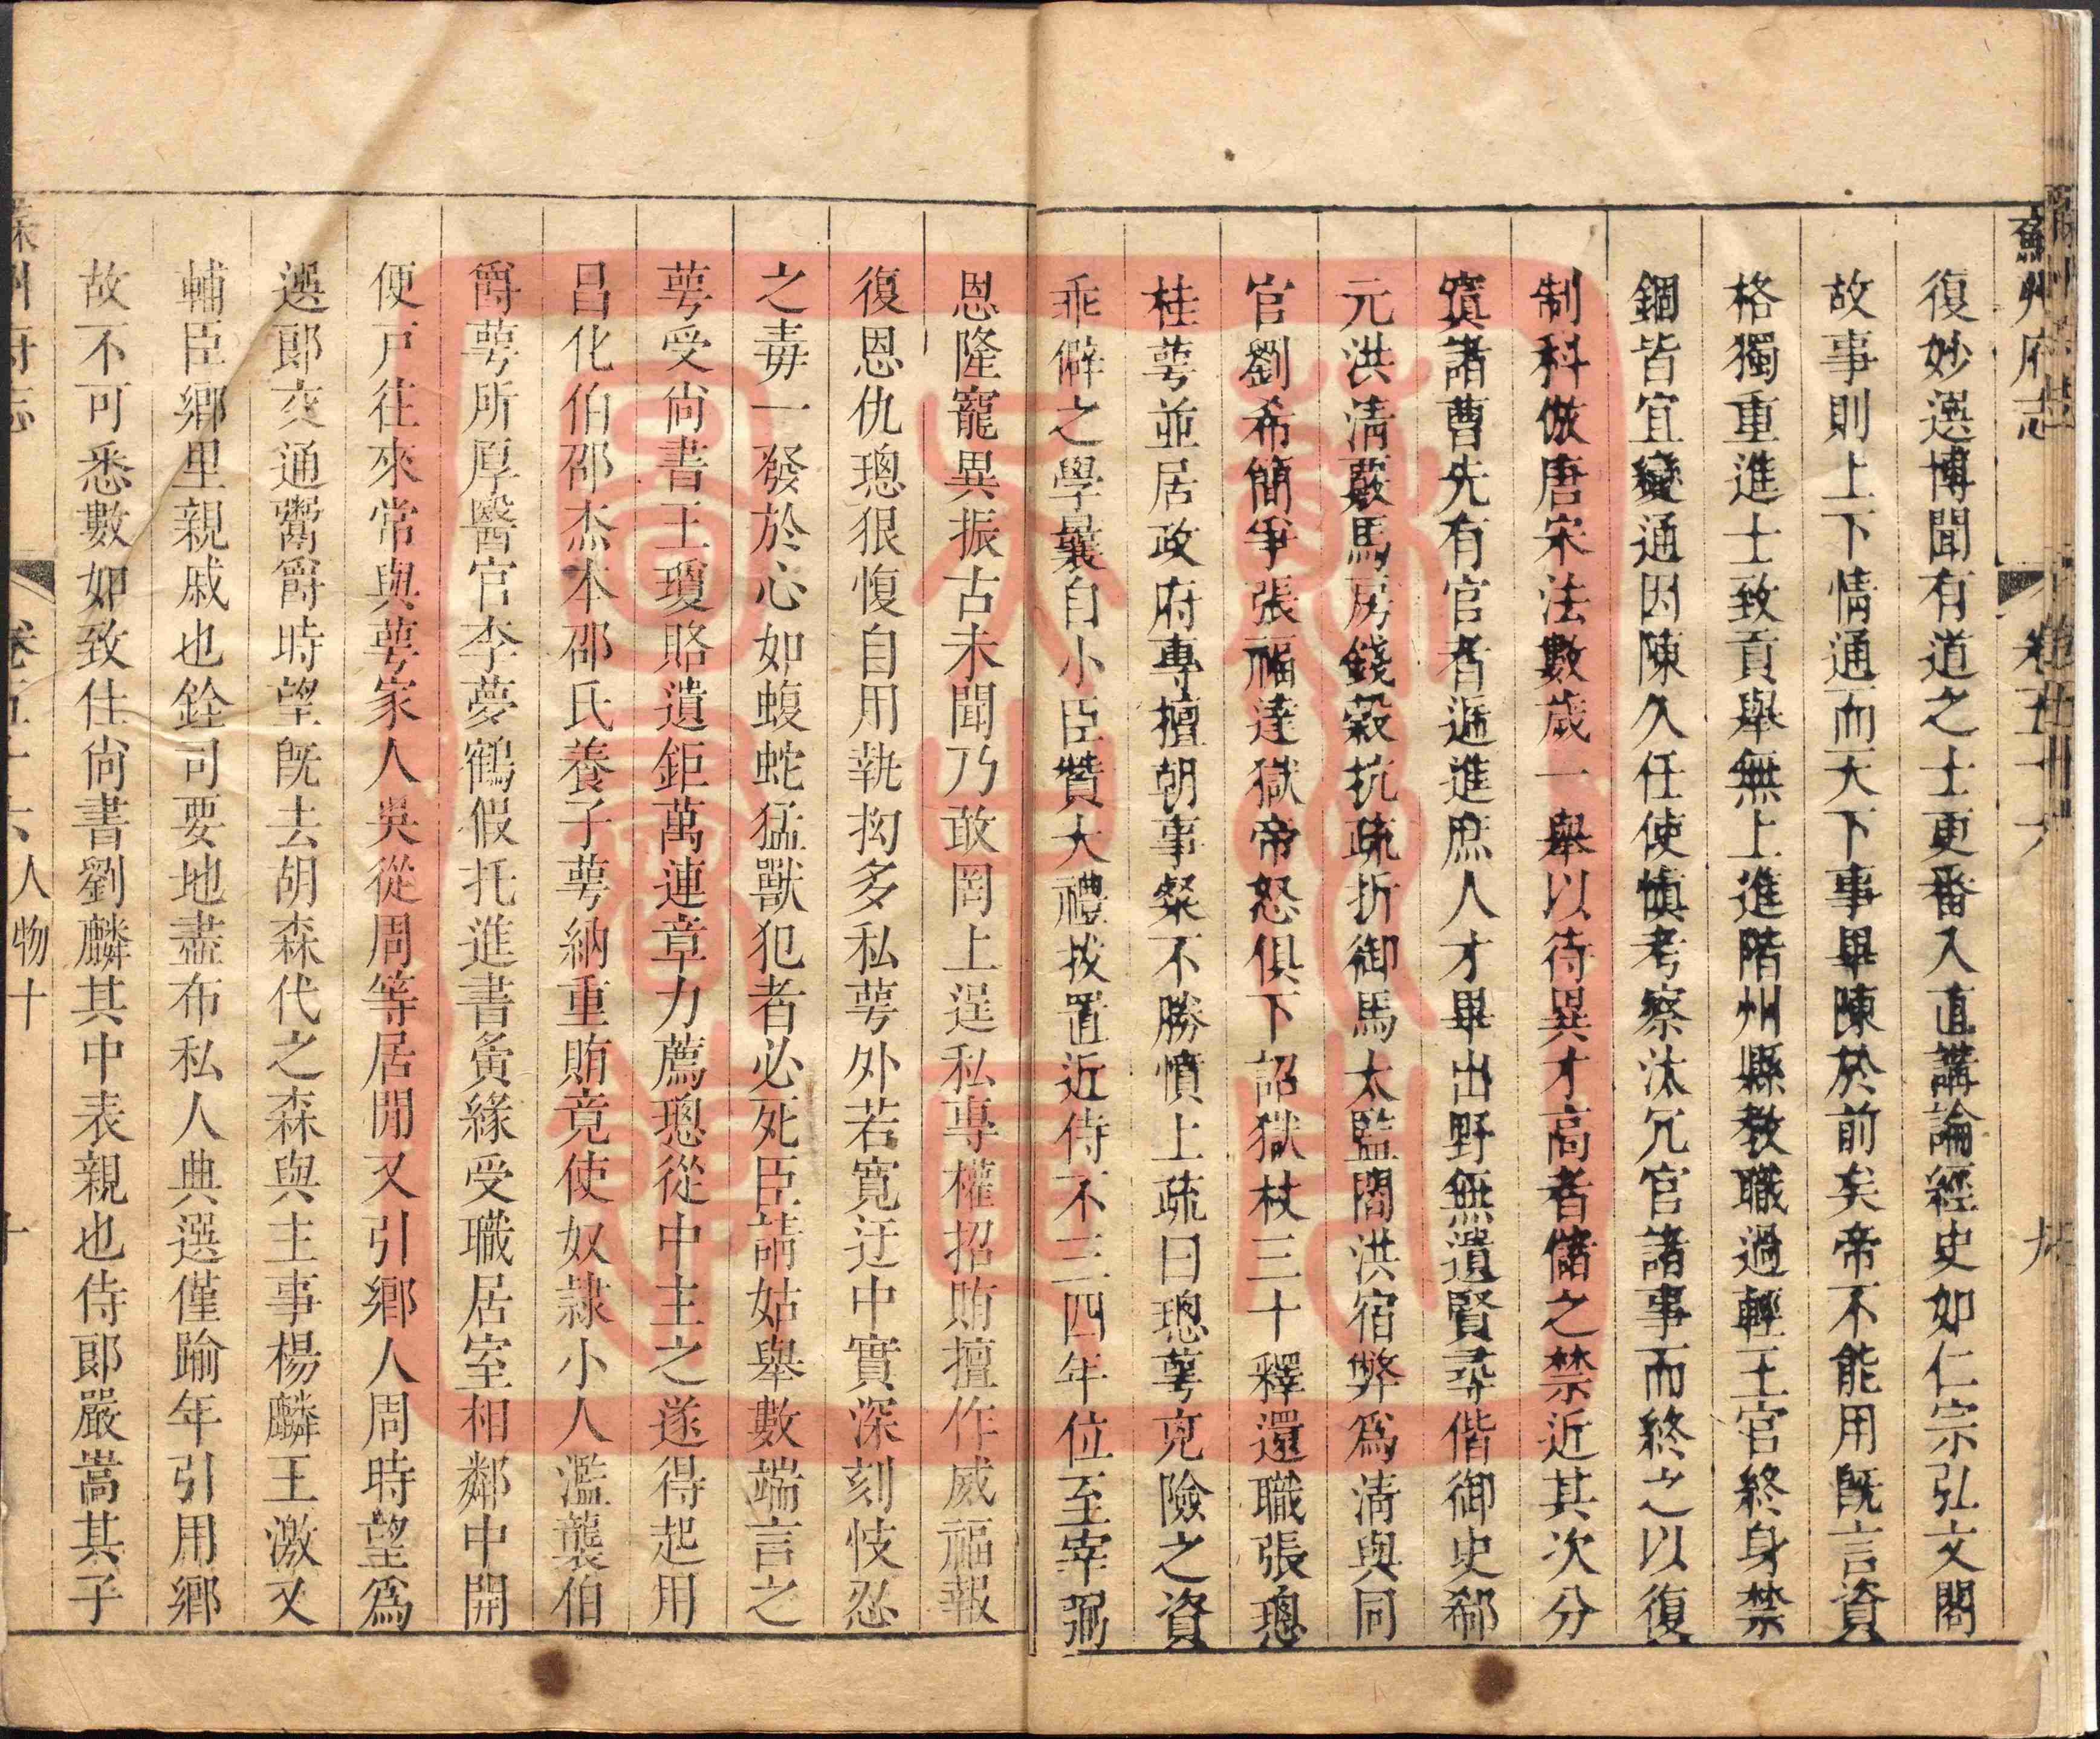 蘇州府志 卷五十六 九
復妙選博聞有道之士更番入直講論經史如仁宗弘文閣
故事則上下情通而天下事畢陳於前矣帝不能用旣言資
格獨重進士致貢舉無上進階州縣教職過輕王官終身禁
錮皆宜變通因陳久任使愼考察汰冗官諸事而終之以復
制科倣唐宋法數歲一舉以待異才高者儲之禁近其次分
寘諸曹先有官者遞進庶人才畢出野無遺賢尋偕御史郗
元洪淸覈馬房錢穀抗疏折御馬太監閻洪宿弊爲淸與同
官劉希簡爭張福達獄帝怒俱下詔獄杖三十釋還職張璁
桂萼並居政府專擅朝事粲不勝憤上疏曰璁萼兇險之資
乖僻之學曩自小臣贊大禮拔置近侍不三四年位至宰弼
恩隆寵異振古未聞乃敢罔上逞私專權招賄擅作威福報
復恩仇璁狠愎自用執拗多私萼外若寬迂中實深刻忮忍
之毒一發於心如蝮蛇猛獸犯者必死臣請姑舉數端言之
萼受尙書王瓊賂遺鉅萬連章力薦璁從中主之遂得起用
昌化伯邵杰本邵氏養子萼納重賄竟使奴隸小人濫襲伯
爵萼所厚醫官李夢鶴假托進書夤緣受職居室相鄰中開
便戶往來常與萼家人吳從周等居閒又引鄉人周時望爲
選郞交通鬻爵時望旣去胡森代之森與主事楊麟王激又
輔臣鄉里親戚也銓司要地盡布私人典選僅踰年引用鄉
故不可悉數如致仕尙書劉麟其中表親也侍郞嚴嵩其子
州府志 卷五十六 人物十 十